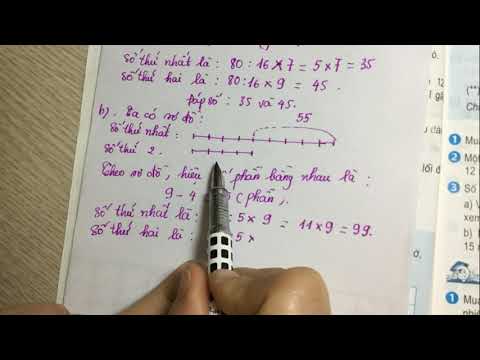 số thứ nhất là : 80 : 16 x 7 = 5 x 7 = 35
số thứ hai là : 80 : 16 x 9 = 45 .
Đáp số : 35 và 45.
b). Ta có sơ đồ :
55
Số thứ nhất :
Số thứ 2 .
Theo sơ đồ , hiệu số phần bằng nhau là :
9 - 4 (phần).
số thứ nhất là : : 5 x 9 = 11 x 9 = 99.
Số thứ hai là : 5 x
1 Mua
12
3 Số
a) V
b)
15
1 Mua